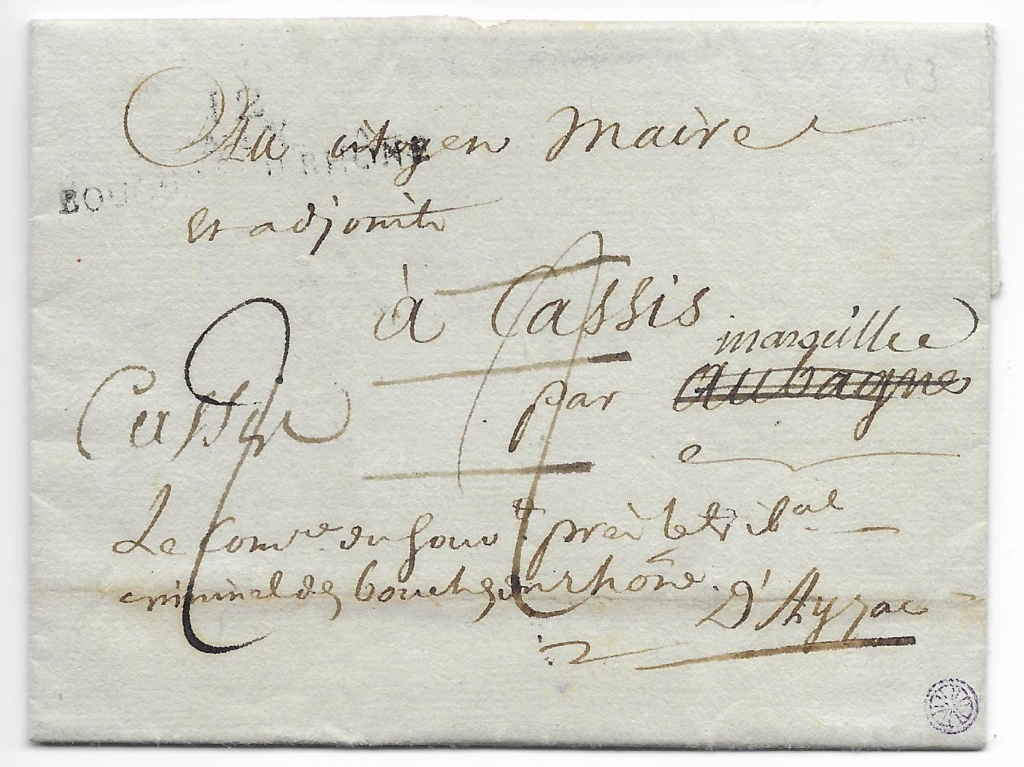 12
BOUCHES DU RHONE
Au citoyen Maire
et adjoints
à Cassis
marseille
par aubagne
Cassis
Le Comre. du Gouvt. près le tribal
criminel des bouches du rhône.
D'Ayzac